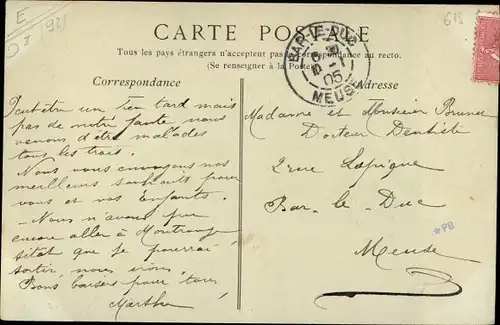 E
921
618
CARTE POSTALE
Tous les pays étrangers n'acceptent pas la correspondance au recto.
(Se renseigner à la Poste)
BAR-LE-DUC
05
MEUSE
Correspondance
Adresse
Peut-être un peu tard mais
pas de notre faute nous
venons d'être malades
tous les trois.
Nous vous envoyons nos
meilleurs souhaits pour
vous et vos Enfants.
- Nous n'avons pu
encore aller à Montrouge
sitôt que je pourrai
sortir, nous irons.
Bons baisers pour tous
Marthe
Madame et Monsieur
Docteur Dentiste
2 rue Lapique
Bar-le-Duc
Meuse
*PB